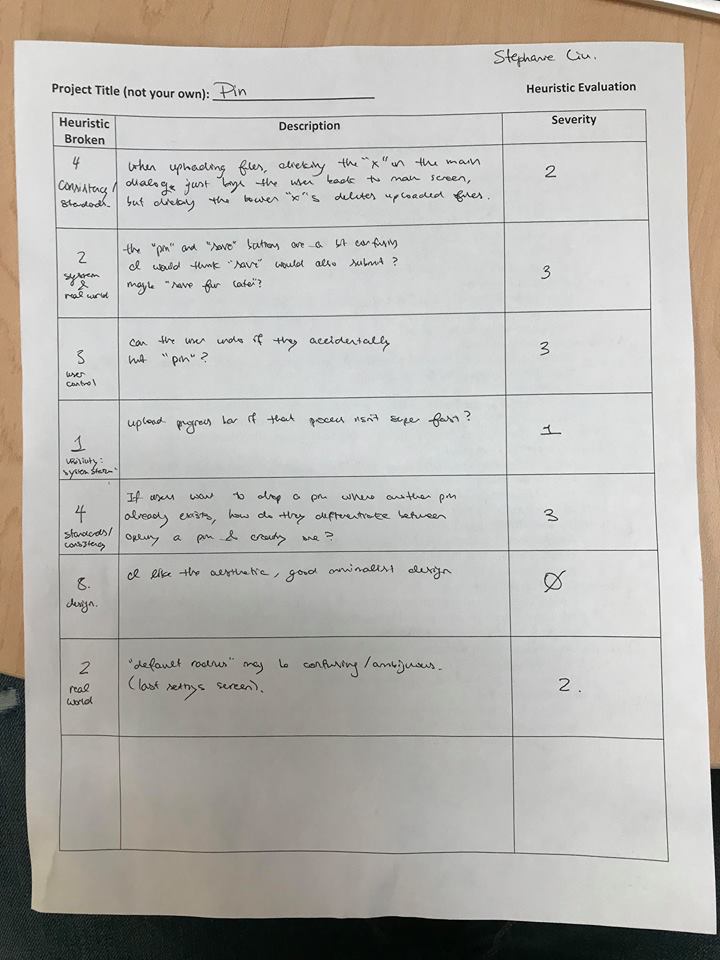 Stephanie Liu.
Project Title (not your own): Pin
Heuristic Evaluation
Heuristic Broken
Description
Severity
4
Consistency/
Standards.
When uploading files, clicking the "x" in the main
dialog just brings the user back to main screen,
but clicking the lower "x"s deletes uploaded files.
2
2
system
&
real world
the "pin" and "save" buttons are a bit confusing
I would think "save" would also submit?
maybe "save for later"?
3
3
user
control
can the user undo if they accidentally
hit "pin"?
3
1
visibility:
system status
upload progress bar if that process isn't super fast?
1
4
standards/
consistency
If users want to drop a pin where another pin
already exists, how do they differentiate between
opening a pin & creating one?
3
8.
design.
I like the aesthetic, good minimalist design
0
2
real
world
"default radius" may be confusing/ambiguous.
(last settings screen).
2.